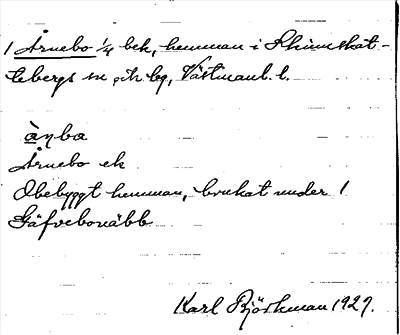 1 Årnebo ¼ bek, hemman i Skinnskat-
tebergs sn och bg, Västmanl. l.
àṇba
Årnebo ek
Obebyggt hemman, brukat under 1
Gäfvebonäbb
Karl Björkman 1927.